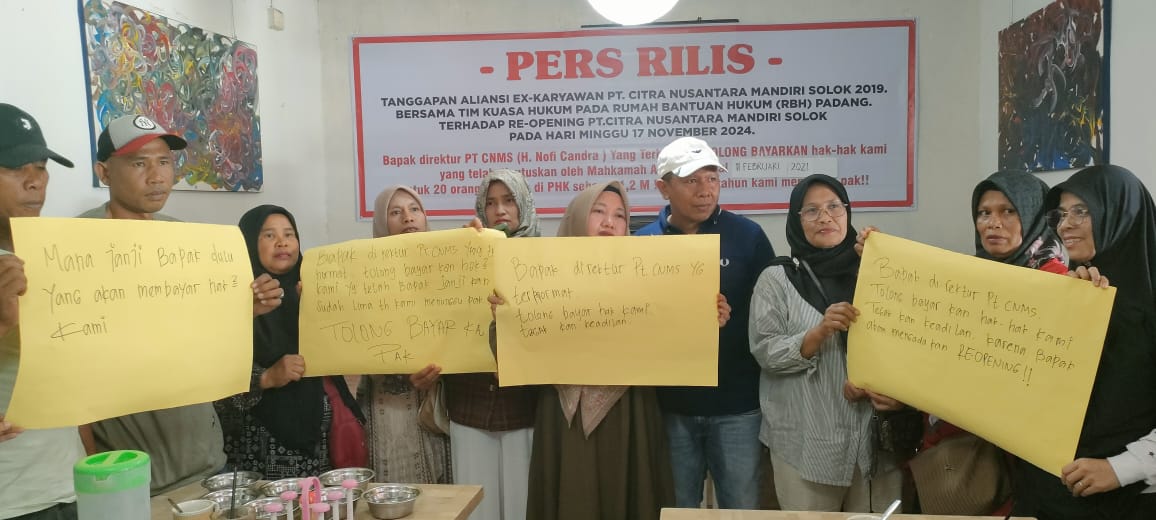 - PERS RILIS -
TANGGAPAN ALIANSI EX-KARYAWAN PT. CITRA NUSANTARA MANDIRI SOLOK 2019.
BERSAMA TIM KUASA HUKUM PADA RUMAH BANTUAN HUKUM (RBH) PADANG.
TERHADAP RE-OPENING PT.CITRA NUSANTARA MANDIRI SOLOK
PADA HARI MINGGU 17 NOVEMBER 2024.
Bapak direktur PT CNMS (H. Nofi Candra ) Yang OLONG BAYARKAN hak-hak kami
yang oleh Mahkamah 11 FEBRUARI 2021
20 orang di PHK ,2 M kami
Mana janji Bapak dulu
yang akan membayar hak²
Kami
Bapak direktur Pt. CNMS yang
hormat tolong bayar kan hak²
kami yg telah Bapak janji kan
sudah lima th kami menunggu pak
TOLONG BAYAR KA
PAK
Bapak direktur Pt CNMS yg
terhormat
tolong bayar hak kami
tegak kan keadilan.
Bapak direktur Pt CNMS.
Tolong bayar kan hak-hak kami
Tegak kan keadilan. karena Bapak
akan mengada kan REOPENING!!